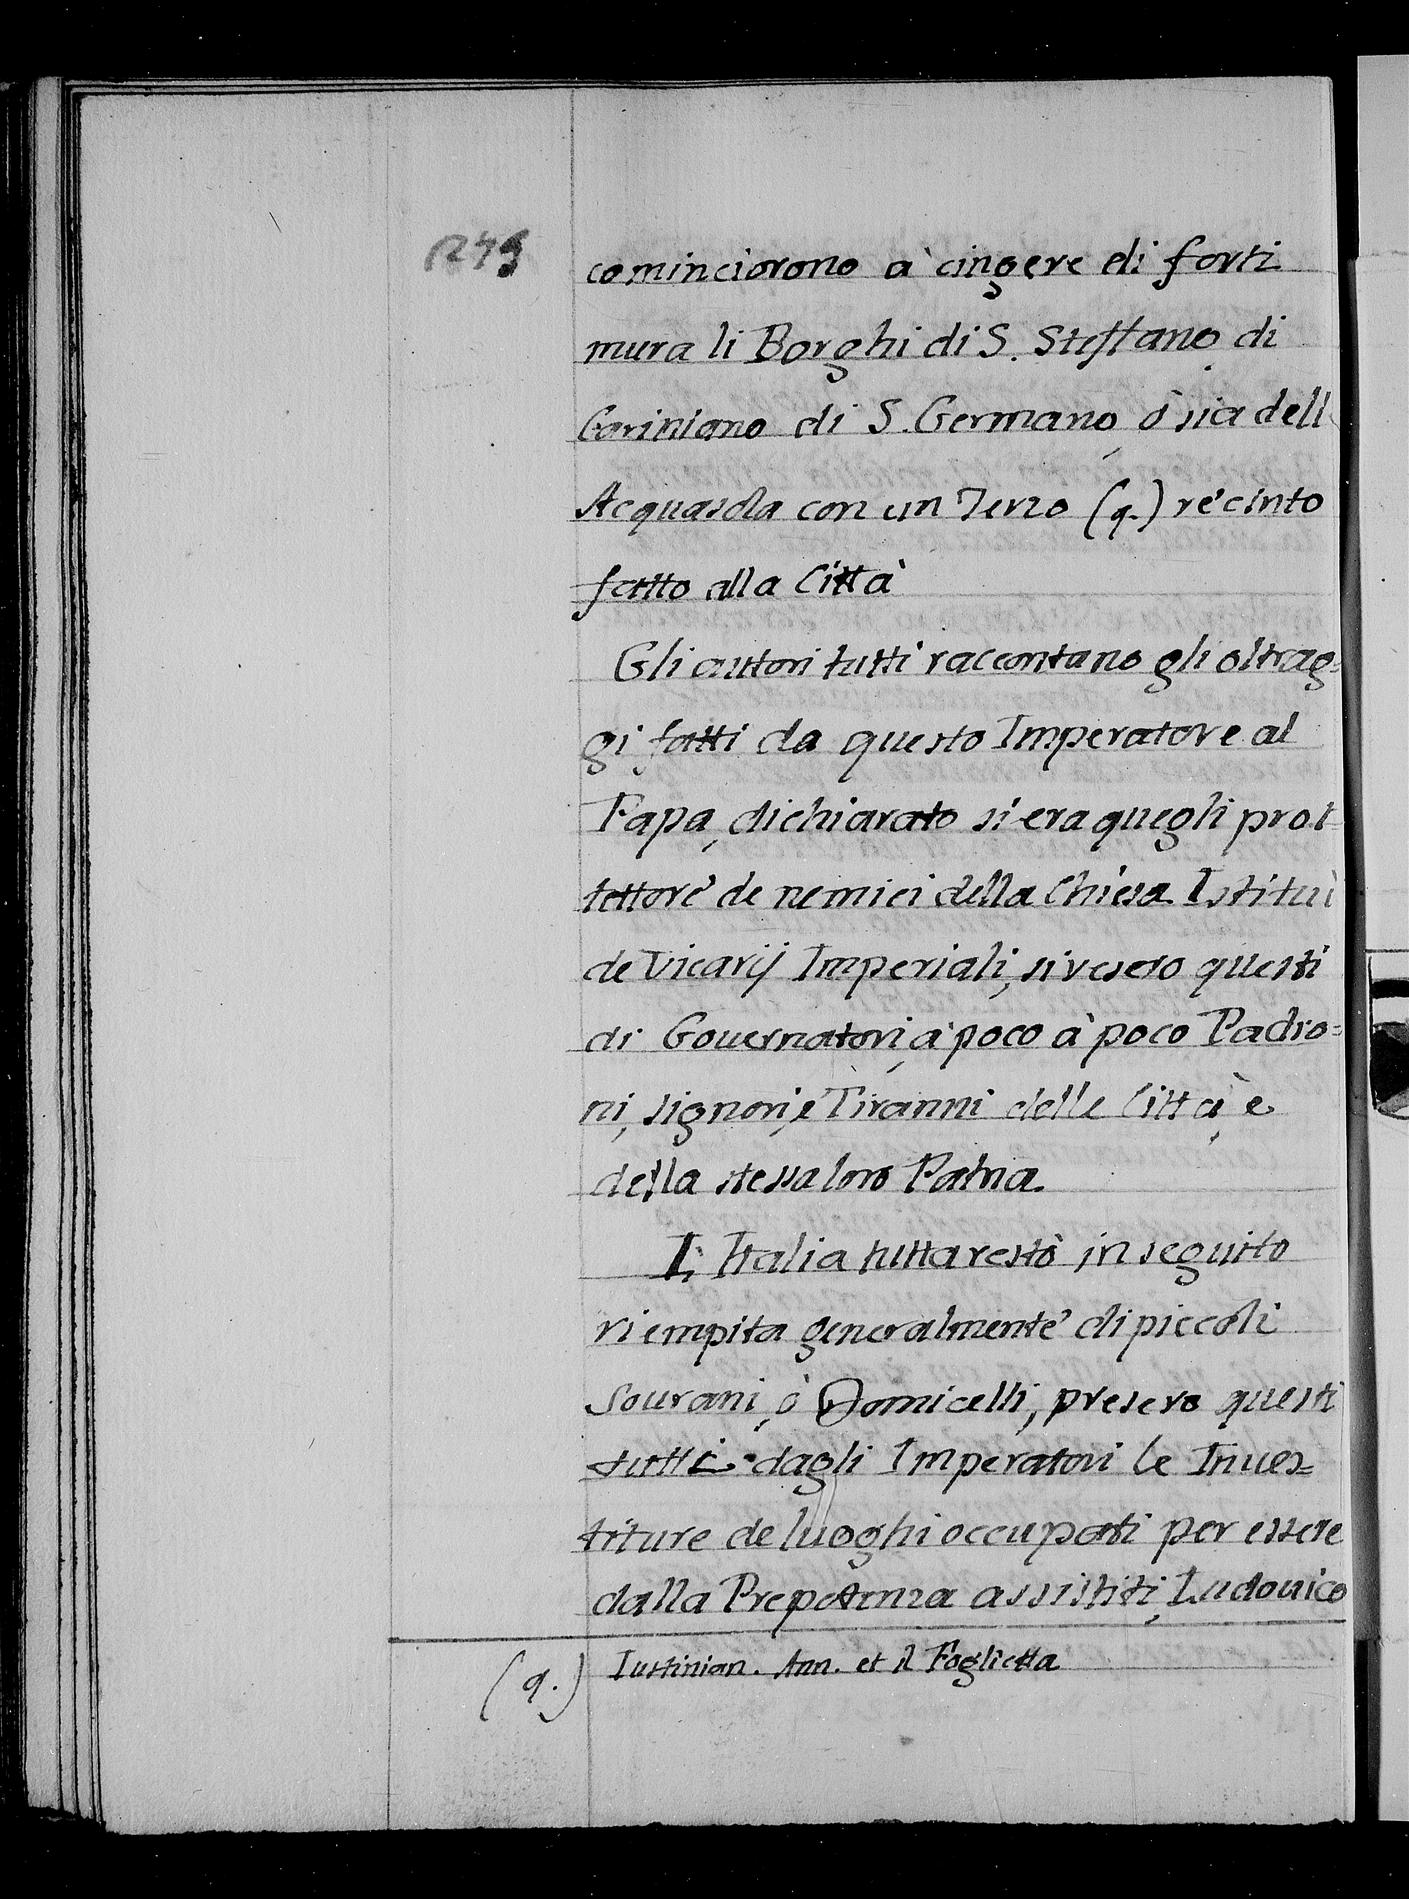 1249
cominciorono a' cingere di forti
mura li Borghi di S. Steffano, di
Cariniano di S. Germano, ò sia dell
Acquasola con un Terzo (q.) recinto
fatto alla Città
Gli autori tutti raccontano gli oltrag=
gi fatti da questo Imperatore al
Papa, dichiarato si era quegli prot=
tettore de nemici della Chiesa. Istituì
de Vicarij Imperiali, si resero questi
di Gouernatori, à poco à poco Padro=
ni, signori, è Tiranni delle Città, è
della stessa loro Patria.
L'Italia tutta restò in seguito
riempita generalmente di piccoli
Sourani, ò Domicelli, presero questi
tutti dagli Imperatori le Inues=
titure de luoghi occupati per essere
dalla Prepotenza assistiti, Ludouico
(q.) Iustinian. Ann. et il Foglietta